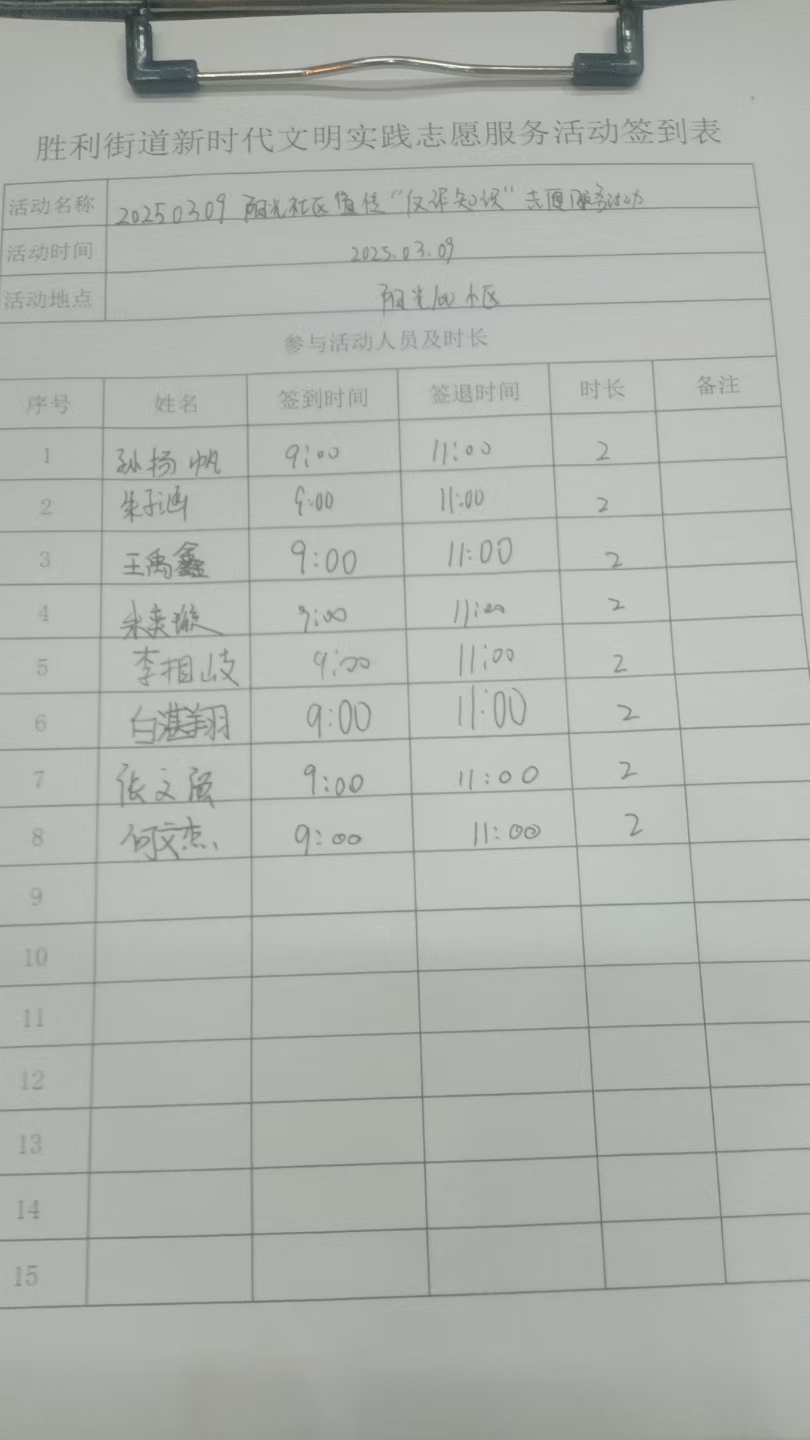 胜利街道新时代文明实践志愿服务活动签到表
活动名称 20250309 阳光社区宣传“反诈知识”志愿服务活动
活动时间 2025.03.09
活动地点 阳光100小区
参与活动人员及时长
序号 姓名 签到时间 签退时间 时长 备注
1 孙扬帆 9:00 11:00 2
2 朱子涵 9:00 11:00 2
3 王禹鑫 9:00 11:00 2
4 奕璇 9:00 11:00 2
5 李相岐 9:00 11:00 2
6 白湛翔 9:00 11:00 2
7 张文 9:00 11:00 2
8 何文杰 9:00 11:00 2
9
10
11
12
13
14
15